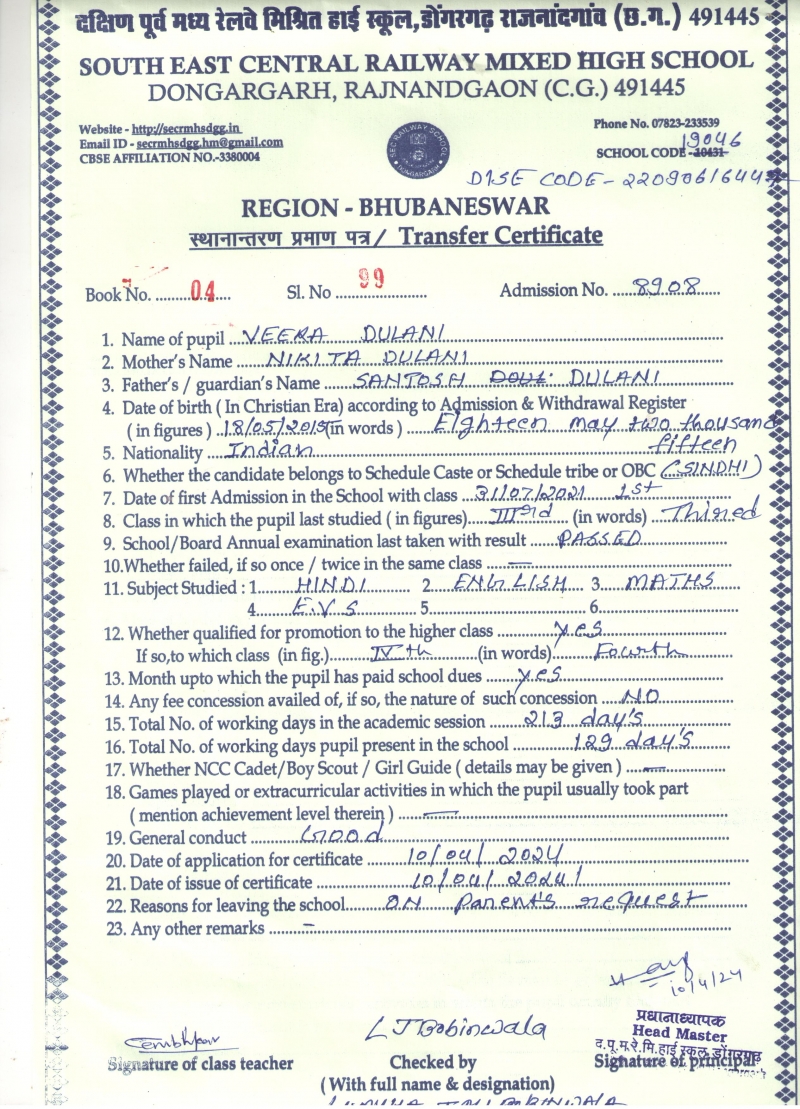 दक्षिण पूर्व मध्य रेलवे मिश्रित हाई स्कूल,डोंगरगढ़ राजनांदगांव (छ.ग.) 491445
SOUTH EAST CENTRAL RAILWAY MIXED HIGH SCHOOL
DONGARGARH, RAJNANDGAON (C.G.) 491445
Website - http://secrmhsdgg.in
Phone No. 07823-233539
Email ID - secrmhsdgg.hm@gmail.com
19046
CBSE AFFILIATION NO.-3380004
SCHOOL CODE-20431
SEC RAILWAY SCHOOL DONGARGARH
DISE CODE-
REGION - BHUBANESWAR
स्थानान्तरण प्रमाण पत्र / Transfer Certificate
Book No. 04 Sl. No 99 Admission No. 8908
1. Name of pupil VEERA DULANI
2. Mother's Name NIKITA DULANI
3. Father's / guardian's Name SANTOSH DULANI
4. Date of birth ( In Christian Era) according to Admission & Withdrawal Register
( in figures ) 18/05/2015 (in words ) Eighteen may two thousand
fifteen
5. Nationality Indian
6. Whether the candidate belongs to Schedule Caste or Schedule tribe or OBC (SINDHI)
7. Date of first Admission in the School with class 31/07/2021 1st
8. Class in which the pupil last studied ( in figures) IIIrd (in words) Thired
9. School/Board Annual examination last taken with result PASSED
10.Whether failed, if so once / twice in the same class —
11. Subject Studied : 1 HINDI 2 ENGLISH 3 MATHS
4 E.V.S 5 6
12. Whether qualified for promotion to the higher class yes
If so,to which class (in fig.) IVth (in words) Fourth
13. Month upto which the pupil has paid school dues yes
14. Any fee concession availed of, if so, the nature of such concession NO
15. Total No. of working days in the academic session 213 day's
16. Total No. of working days pupil present in the school 129 day's
17. Whether NCC Cadet/Boy Scout / Girl Guide ( details may be given ) —
18. Games played or extracurricular activities in which the pupil usually took part
( mention achievement level therein ) —
19. General conduct Good
20. Date of application for certificate 10/04/2024
21. Date of issue of certificate 10/04/2024
22. Reasons for leaving the school ON Parent's request
23. Any other remarks –
10/4/24
प्रधानाध्यापक
Head Master
द.पू.म.रे.मि.हाई स्कूल डोंगरगढ़
L J Bobinwala
Signature of class teacher
Checked by
Signature of principal
(With full name & designation)